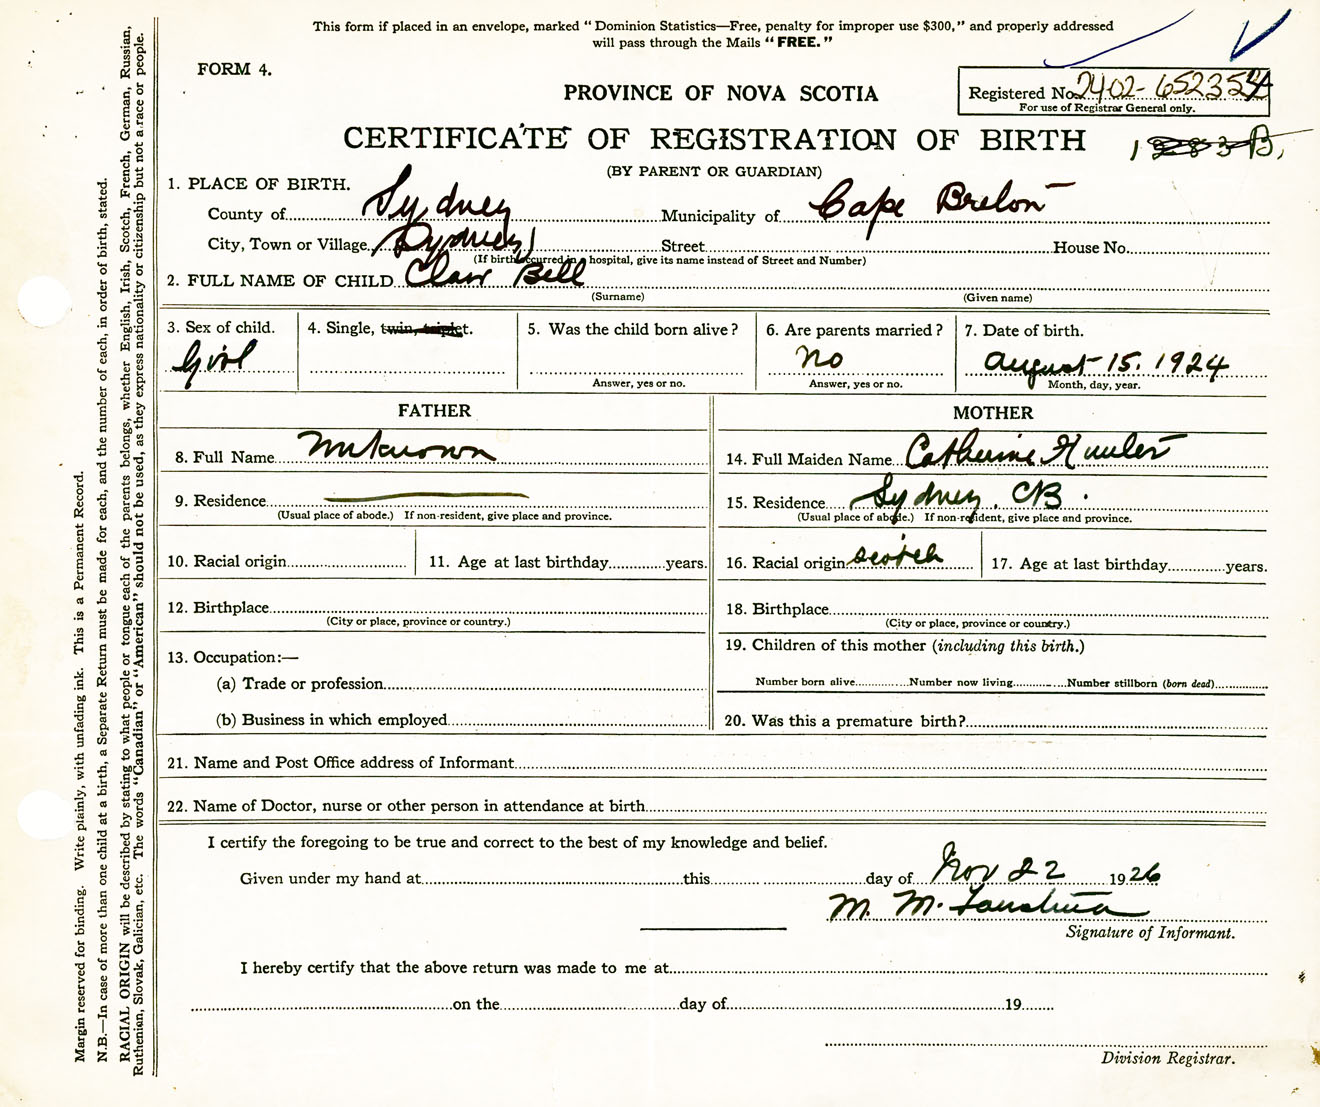 This form if placed in an envelope, marked "Dominion Statistics—Free, penalty for improper use $300," and properly addressed
will pass through the Mails "FREE."
FORM 4.
PROVINCE OF NOVA SCOTIA
Registered No. 2402-652352A
For use of Registrar General only.
CERTIFICATE OF REGISTRATION OF BIRTH
(BY PARENT OR GUARDIAN)
1. PLACE OF BIRTH.
County of Sydney Municipality of Cape Breton
City, Town or Village Sydney Street House No.
(If birth occurred in hospital, give its name instead of Street and Number)
2. FULL NAME OF CHILD Clair Bell
(Surname) (Given name)
3. Sex of child. 4. Single, twin, triplet. 5. Was the child born alive? 6. Are parents married? 7. Date of birth.
Girl no August 15. 1924
Answer, yes or no. Answer, yes or no. Month, day, year.
FATHER MOTHER
8. Full Name Unknown 14. Full Maiden Name Catherine
9. Residence 15. Residence Sydney. CB.
(Usual place of abode.) If non-resident, give place and province. (Usual place of abode.) If non-resident, give place and province.
10. Racial origin 11. Age at last birthday years. 16. Racial origin scotch 17. Age at last birthday years.
12. Birthplace 18. Birthplace
(City or place, province or country.) (City or place, province or country.)
13. Occupation:— 19. Children of this mother (including this birth.)
(a) Trade or profession Number born alive Number now living Number stillborn (born dead)
(b) Business in which employed 20. Was this a premature birth?
21. Name and Post Office address of Informant
22. Name of Doctor, nurse or other person in attendance at birth
I certify the foregoing to be true and correct to the best of my knowledge and belief.
Given under my hand at this day of Nov 22 1926
M. M.
Signature of Informant.
I hereby certify that the above return was made to me at
on the day of 19
Division Registrar.
Margin reserved for binding. Write plainly, with unfading ink. This is a Permanent Record.
N.B.—In case of more than one child at a birth, a Separate Return must be made for each, and the number of each, in order of birth, stated.
RACIAL ORIGIN will be described by stating to what people or tongue each of the parents belongs, whether English, Irish, Scotch, French, German, Russian,
Ruthenian, Slovak, Galician, etc. The words "Canadian" or "American" should not be used, as they express nationality or citizenship but not a race or people.